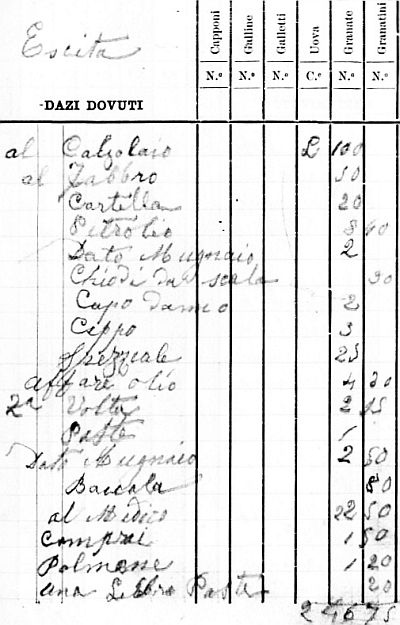 Escita
Capponi Galline Galletti Uova Granate Granatini
N.º N.º N.º C.º N.º N.º
DAZI DOVUTI
al Calzolaio L 100
al Fabbro 50
Cartella 20
Petrolio 8 40
Dato Mugnaio 2
Chiodi da scala 30
Capo danno 2
Ceppo 3
Speziale 25
affare olio 4 30
2a Volta 2 15
Paste 1
Dato Mugnaio 2 50
Baccala 80
al Medico 22 50
Comprai 1 50
Polmone 1 20
una Libbra Paste 20